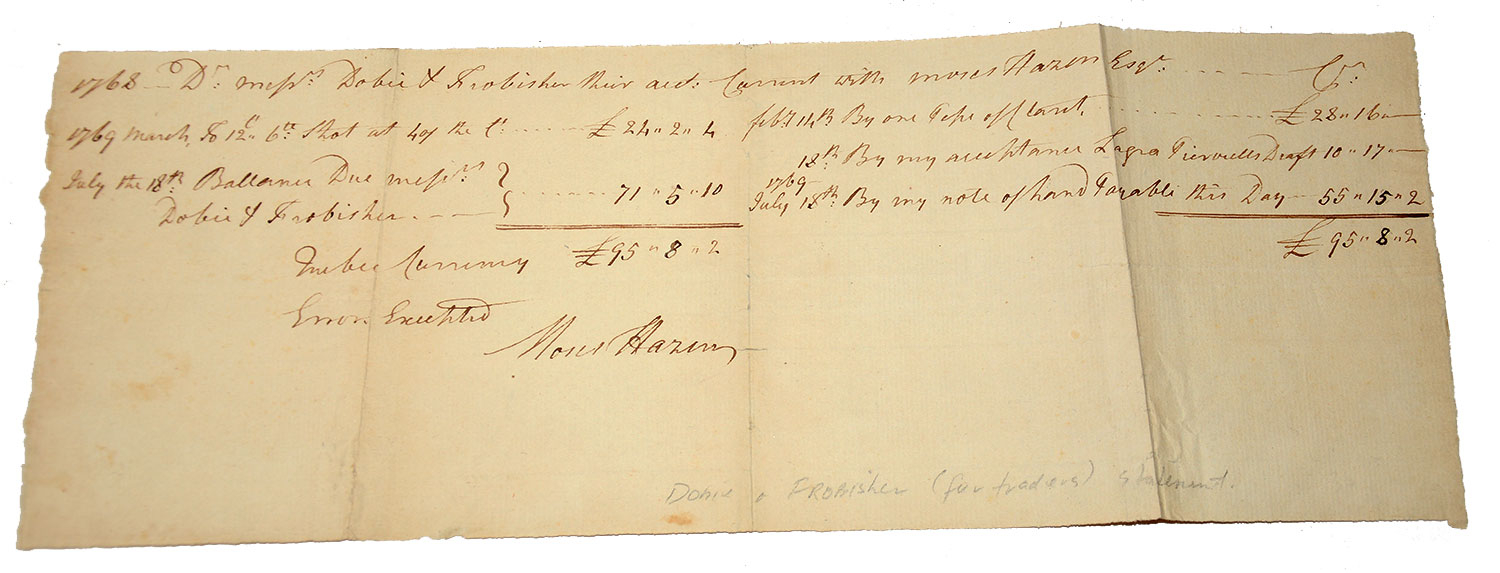 1768 Dr. messrs. Dobie & Frobisher their acct: Current with moses Hazen Esqr. Cr.
1769 March, To 12c 6 Shot at 40/ the Ct. £24 " 2 " 4
July the 18th. Ballance Due messrs
Dobie & Frobisher. 71 " 5 " 10
Quebec Currency £95 " 8 " 2
Errors Excepted
Moses Hazen
feby 14th By one of Claret, £28 " 16 "
18th By my acceptance Draft 10 " 17 "
1769
July 18th. By my note of hand Payable this Day 55 " 15 " 2
£95 " 8 " 2
Dobie & FROBISHER (fur traders) statement.